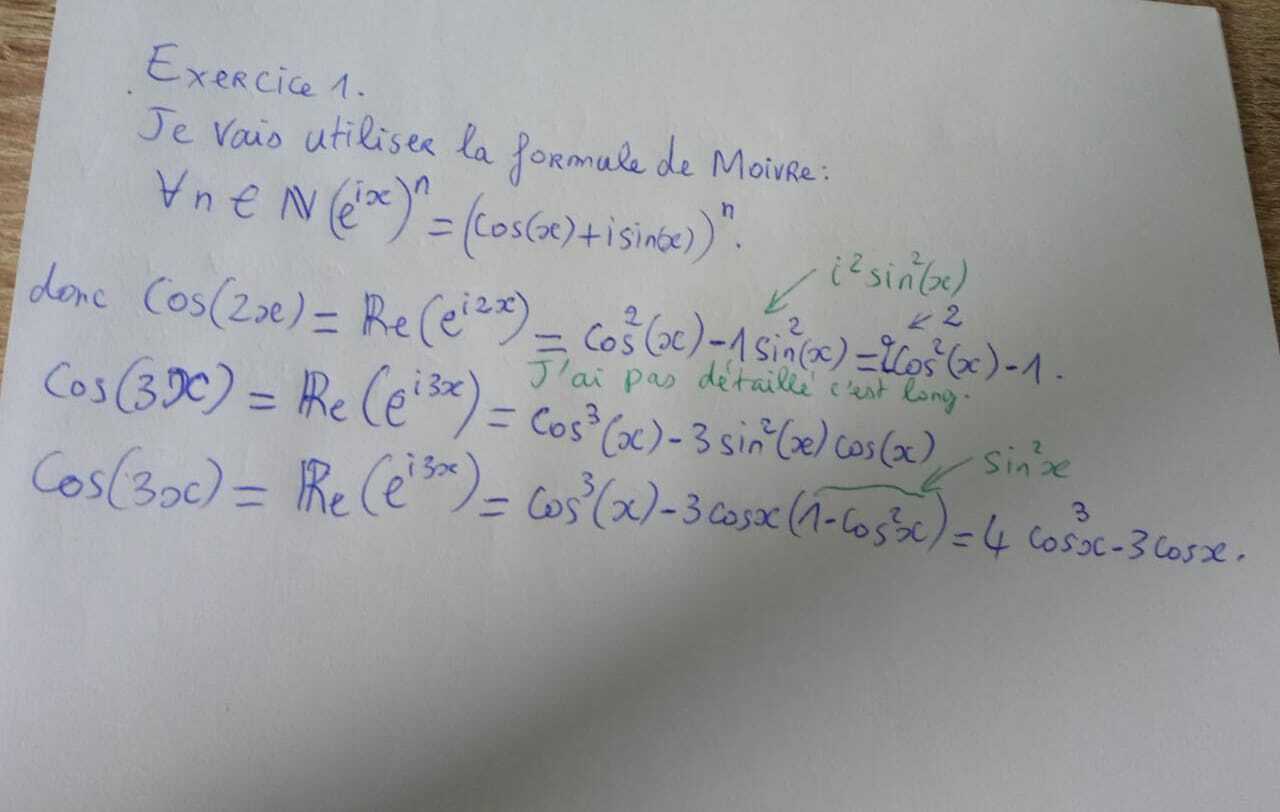 Exercice 1.
Je vais utiliser la formule de Moivre:
∀n ∈ ℕ (e^{ix})^n = (cos(x)+isin(x))^n.
i²sin²(x)
donc Cos(2x) = Re(e^{i2x}) = cos²(x)-1sin²(x) = 2cos²(x)-1.
↙ 2
J'ai pas détaillé c'est long.
Cos(3x) = Re(e^{i3x}) = cos³(x)-3sin²(x)cos(x)
sin²x
Cos(3x) = Re(e^{i3x}) = cos³(x)-3cosx(1-cos²x) = 4cos³x-3cosx.